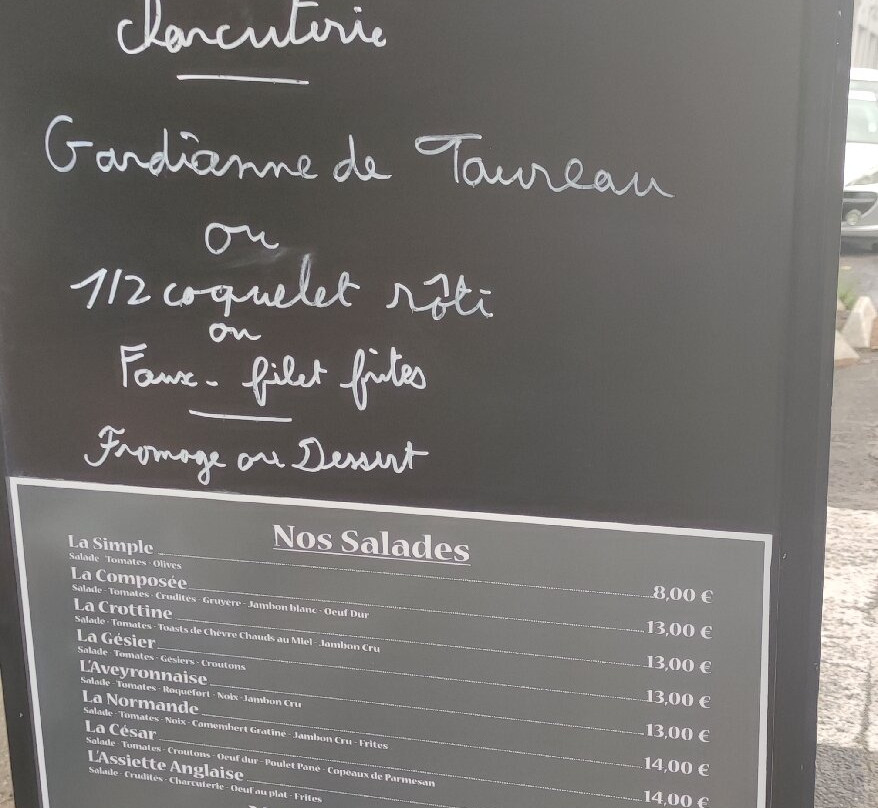 Charcuterie
Gardianne de Taureau
ou
1/2 coquelet rôti
ou
Faux-filet frites
Fromage ou Dessert
Nos Salades
La Simple 8,00 €
Salade - Tomates - Olives
La Composée 13,00 €
Salade - Tomates - Crudités - Gruyère - Jambon blanc - Oeuf Dur
La Crottine 13,00 €
Salade - Tomates - Toasts de Chèvre Chauds au Miel - Jambon Cru
La Gésier 13,00 €
Salade - Tomates - Gésiers - Croutons
L'Aveyronnaise 13,00 €
Salade - Tomates - Roquefort - Noix - Jambon Cru
La Normande 14,00 €
Salade - Tomates - Noix - Camembert Gratiné - Jambon Cru - Frites
La César 14,00 €
Salade - Tomates - Croutons - Oeuf dur - Poulet Pané - Copeaux de Parmesan
L'Assiette Anglaise
Salade - Crudités - Charcuterie - Oeuf au plat - Frites